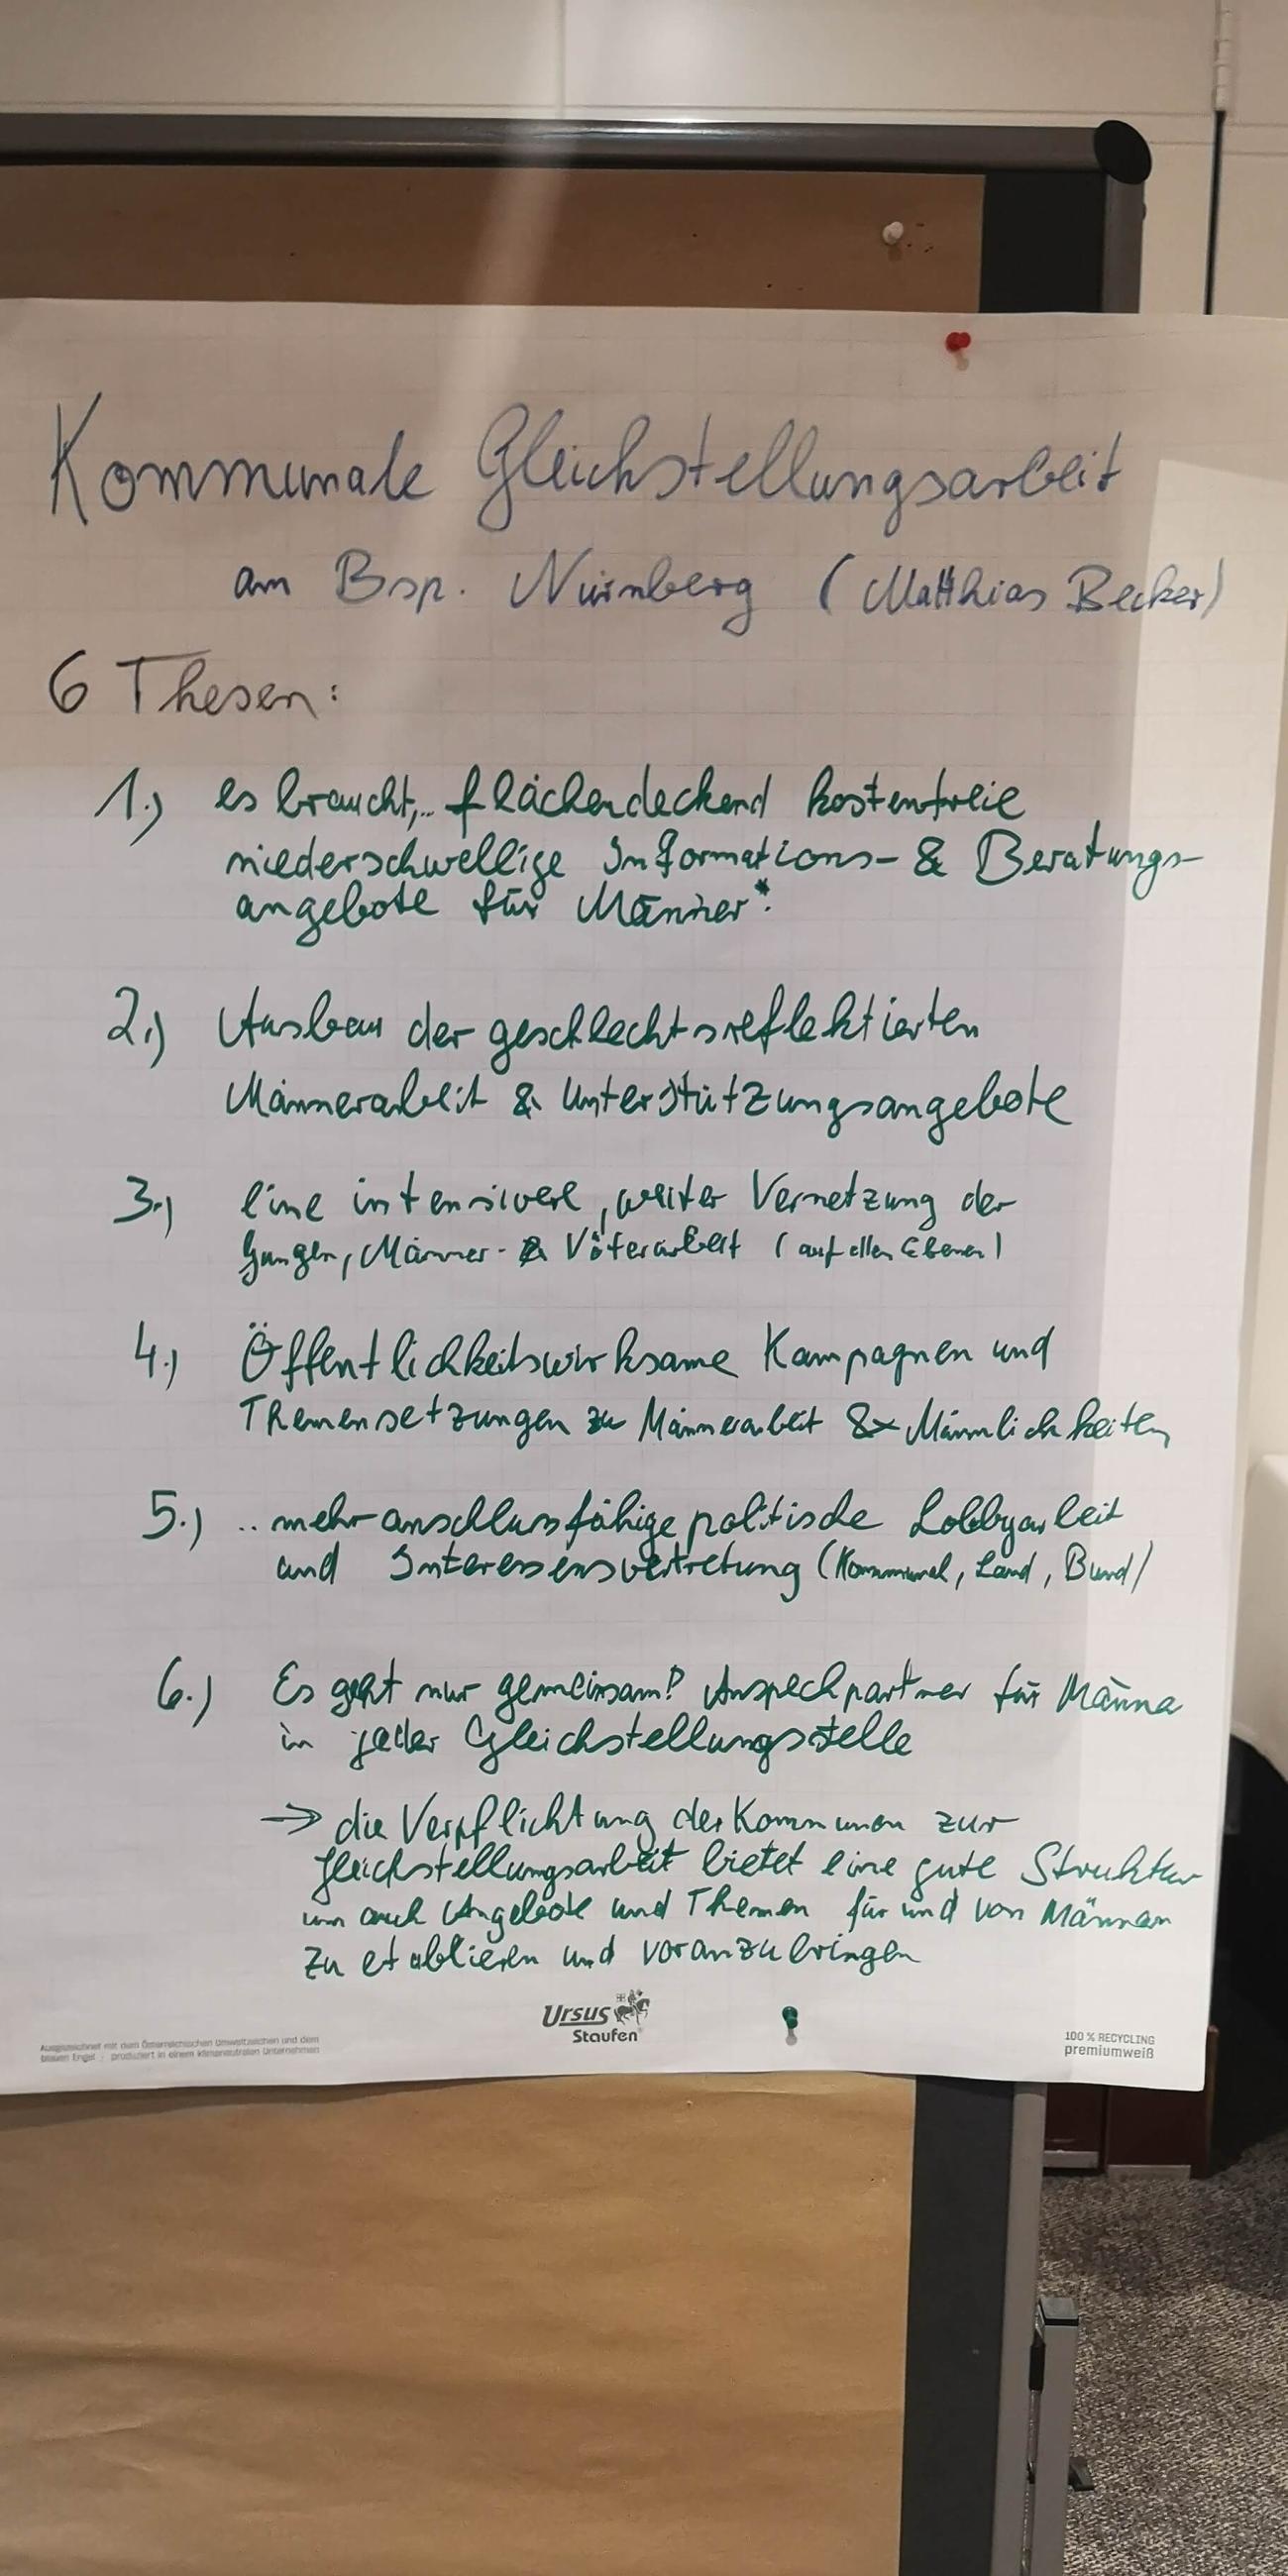 Kommunale Gleichstellungsarbeit
am Bsp. Nürnberg (Matthias Becker)
6 Thesen:
1.) es braucht,.. flächendeckend kostenfreie
niederschwellige Informations- & Beratungs-
angebote für Männer*.
2.) Ausbau der geschlechtsreflektierten
Männerarbeit & Unterstützungsangebote
3.) eine intensivere, weiter Vernetzung der
Jungen, Männer- & Väterarbeit (auf allen Ebenen)
4.) Öffentlichkeitswirksame Kampagnen und
Themensetzungen zu Männerarbeit & Männlichkeiten
5.) .. mehr anschlussfähige politische Lobbyarbeit
und Interessensvertretung (Kommunal, Land, Bund)
6.) Es geht nur gemeinsam! Anspechpartner für Männer
in jeder Gleichstellungsstelle
→ die Verpflichtung der Kommunen zur
Gleichstellungsarbeit bietet eine gute Struktur
um auch Angebote und Themen für und von Männern
zu etablieren und voranzubringen
Ursus
Staufen
Ausgezeichnet mit dem Österreichischen Umweltzeichen und dem
blauen Engel - produziert in einem klimaneutralen Unternehmen
100 % RECYCLING
premiumweiß